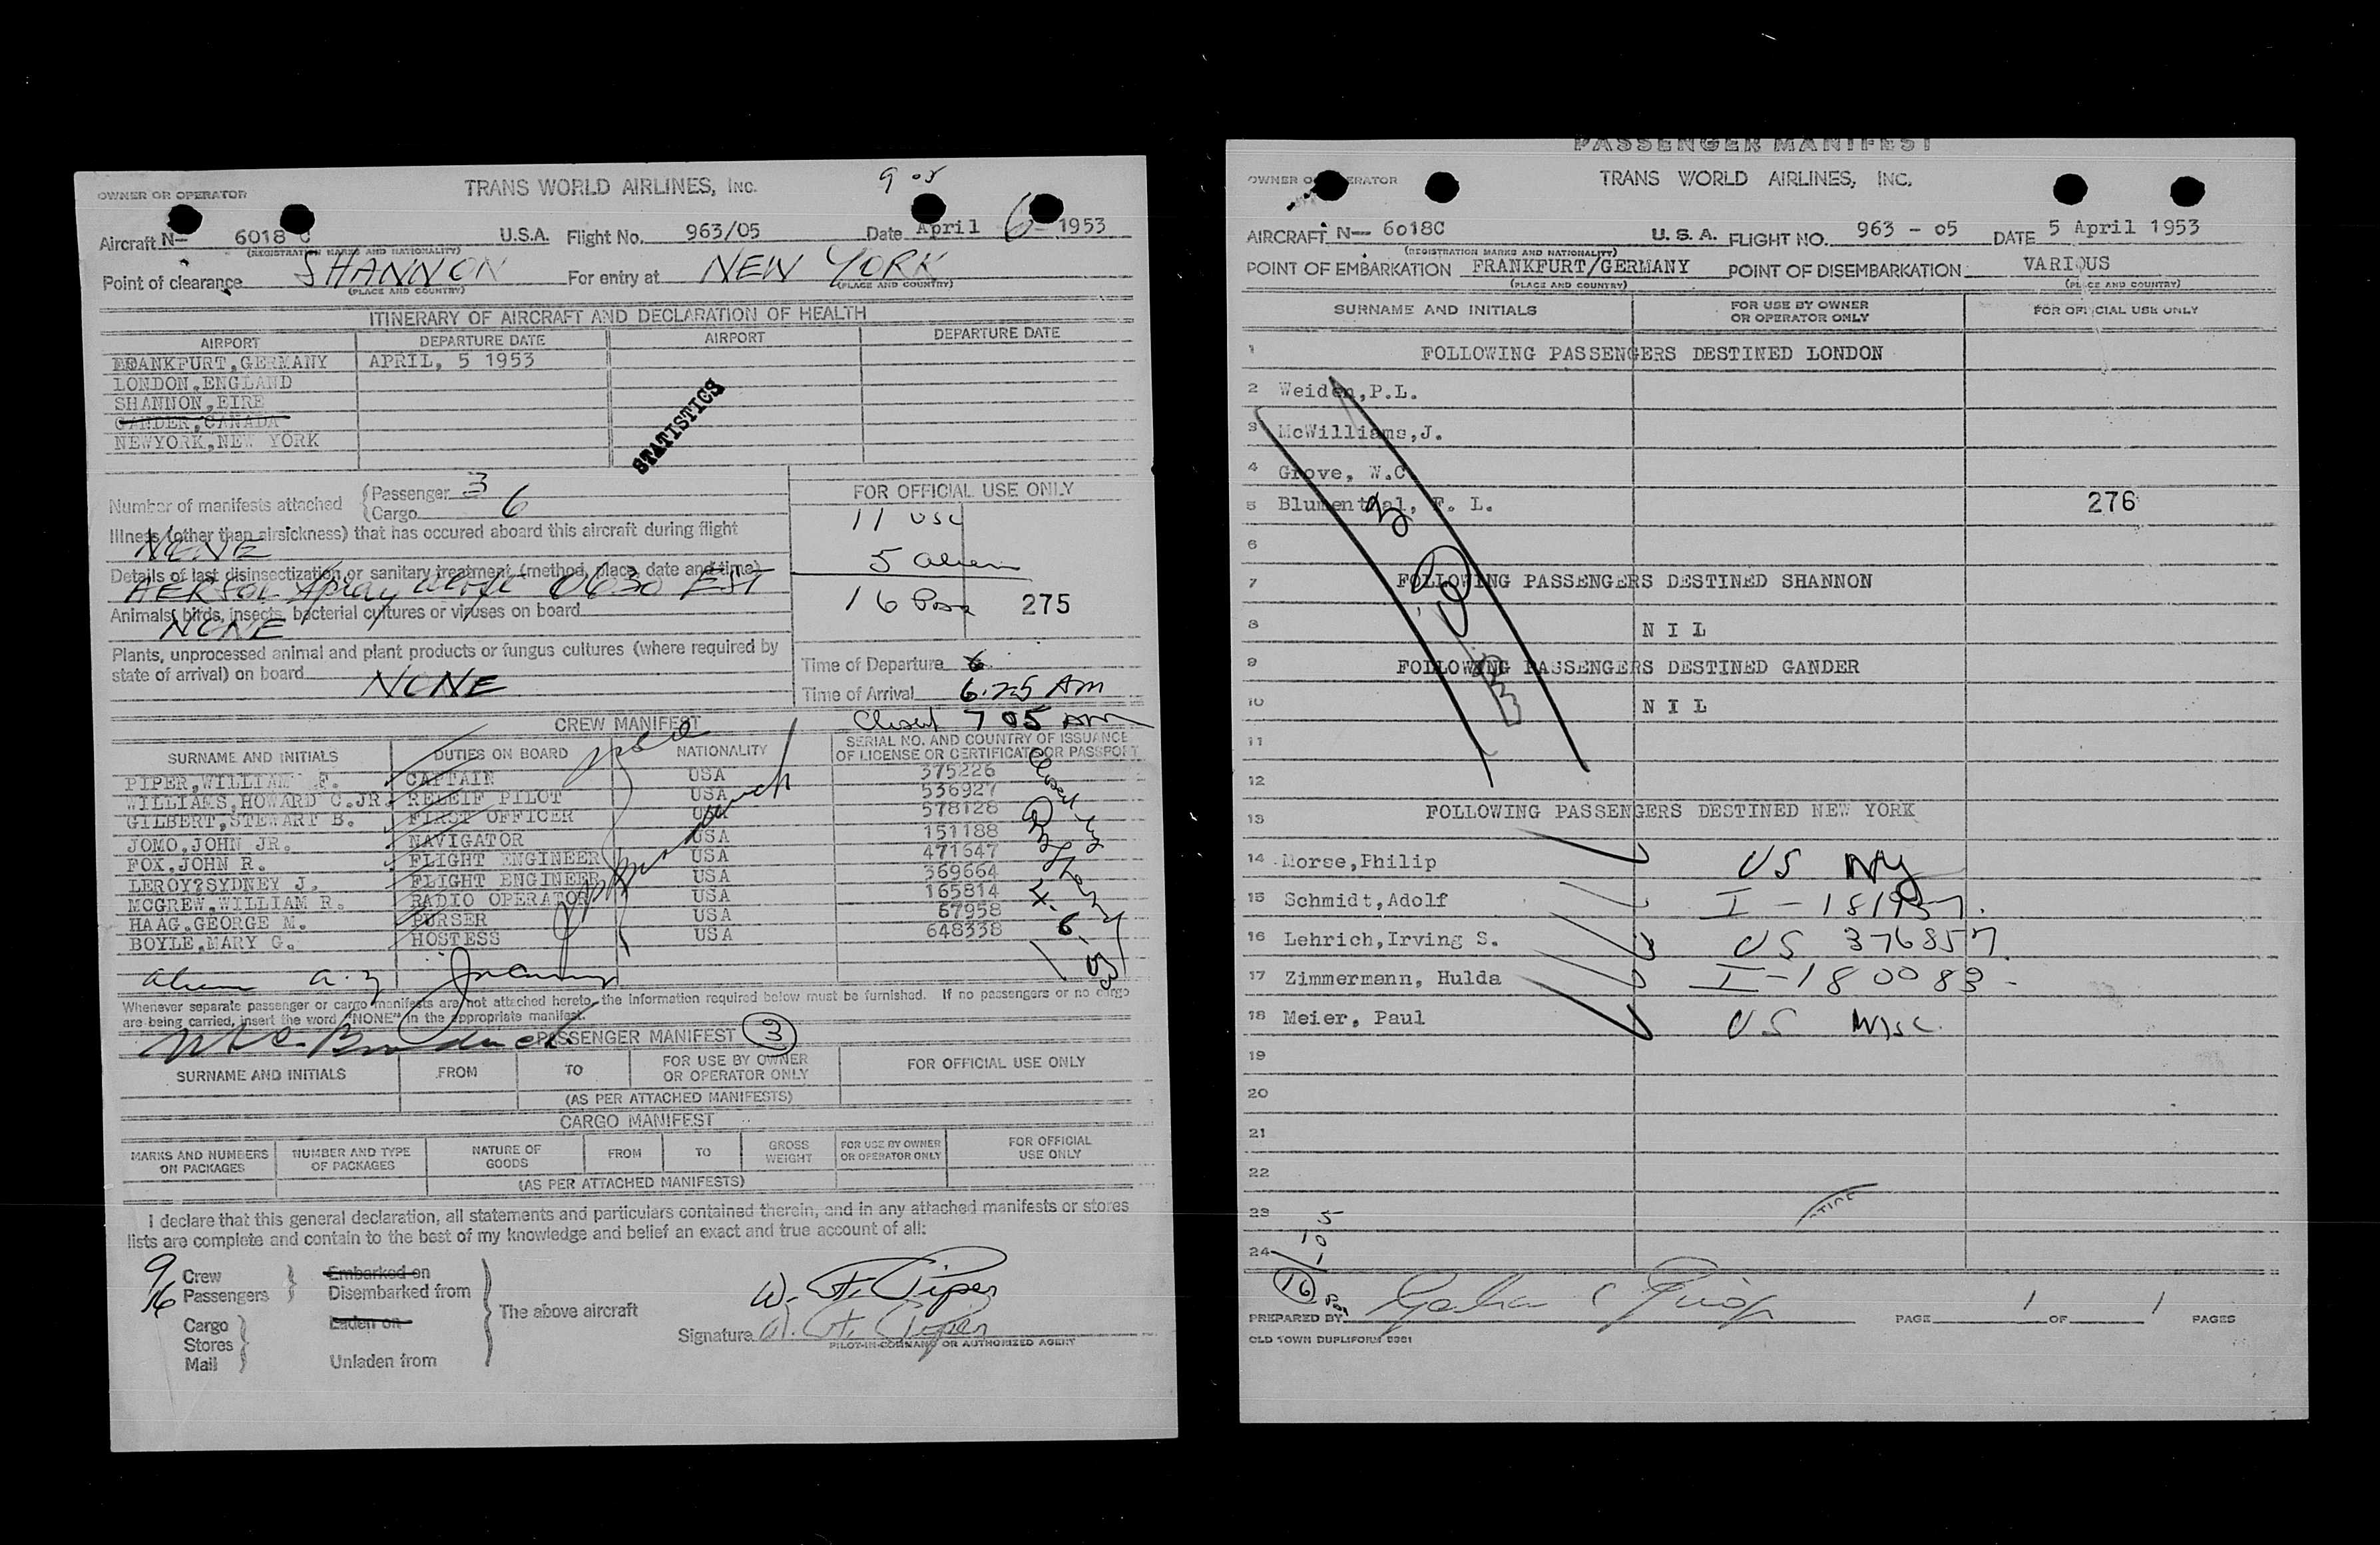 OWNER OR OPERATOR TRANS WORLD AIRLINES, INC.
Aircraft N- 6018 C U.S.A. Flight No. 963/05 Date April 6 1953
(REGISTRATION MARKS AND NATIONALITY)
Point of clearance SHANNON For entry at NEW YORK
(PLACE AND COUNTRY) (PLACE AND COUNTRY)
ITINERARY OF AIRCRAFT AND DECLARATION OF HEALTH
AIRPORT DEPARTURE DATE AIRPORT DEPARTURE DATE
FRANKFURT,GERMANY APRIL, 5 1953
LONDON,ENGLAND
SHANNON,EIRE
GANDER,CANADA
NEWYORK,NEW YORK
STATISTICS
Number of manifests attached (Passenger 3
(Cargo 6
FOR OFFICIAL USE ONLY
11 USC
5 alien
16 Pass 275
Illness (other than airsickness) that has occured aboard this aircraft during flight
NONE
Details of last disinsectization or sanitary treatment (method, place, date and time)
AERSOL Spray aloft 0630 EST
Animals, birds, insects, bacterial cultures or viruses on board
NONE
Plants, unprocessed animal and plant products or fungus cultures (where required by
state of arrival) on board NONE
Time of Departure
Time of Arrival 6.25 AM
Closed 7 05 AM
CREW MANIFEST
SURNAME AND INITIALS DUTIES ON BOARD NATIONALITY SERIAL NO. AND COUNTRY OF ISSUANCE
OF LICENSE OR CERTIFICATE OR PASSPORT
PIPER,WILLIAM F. CAPTAIN USA 375226
WILLIAMS,HOWARD C.JR. RELEIF PILOT USA 536927
GILBERT,STEWART B. FIRST OFFICER USA 578128
JOMO,JOHN JR. NAVIGATOR USA 151188
FOX,JOHN R. FLIGHT ENGINEER USA 471647
LEROY?SYDNEY J. FLIGHT ENGINEER USA 369664
MCGREW,WILLIAM R. RADIO OPERATOR USA 165814
HAAG,GEORGE M. PURSER USA 67958
BOYLE,MARY G. HOSTESS USA 648338
Whenever separate passenger or cargo manifests are not attached hereto, the information required below must be furnished. If no passengers or no cargo
are being carried, insert the word "NONE" in the appropriate manifest.
PASSENGER MANIFEST 3
SURNAME AND INITIALS FROM TO FOR USE BY OWNER
OR OPERATOR ONLY FOR OFFICIAL USE ONLY
(AS PER ATTACHED MANIFESTS)
CARGO MANIFEST
MARKS AND NUMBERS
ON PACKAGES NUMBER AND TYPE
OF PACKAGES NATURE OF
GOODS FROM TO GROSS
WEIGHT FOR USE BY OWNER
OR OPERATOR ONLY FOR OFFICIAL
USE ONLY
(AS PER ATTACHED MANIFESTS)
I declare that this general declaration, all statements and particulars contained therein, and in any attached manifests or stores
lists are complete and contain to the best of my knowledge and belief an exact and true account of all:
9 Crew Embarked on
16 Passengers Disembarked from
The above aircraft
Cargo Laden on
Stores
Mail Unladen from
W. F. Piper
Signature W. F. Piper
PILOT-IN-COMMAND OR AUTHORIZED AGENT
PASSENGER MANIFEST
OWNER OR OPERATOR TRANS WORLD AIRLINES, INC.
AIRCRAFT N- 6018C U. S. A. FLIGHT NO. 963 - 05 DATE 5 April 1953
(REGISTRATION MARKS AND NATIONALITY)
POINT OF EMBARKATION FRANKFURT/GERMANY POINT OF DISEMBARKATION VARIOUS
(PLACE AND COUNTRY) (PLACE AND COUNTRY)
SURNAME AND INITIALS FOR USE BY OWNER
OR OPERATOR ONLY FOR OFFICIAL USE ONLY
1 FOLLOWING PASSENGERS DESTINED LONDON
2 Weiden,P.L.
3 McWilliams,J.
4 Grove, W.C
5 Blumenthal, F. L. 276
6
7 FOLLOWING PASSENGERS DESTINED SHANNON
8 N I L
9 FOLLOWING PASSENGERS DESTINED GANDER
10 N I L
11
12
13 FOLLOWING PASSENGERS DESTINED NEW YORK
14 Morse,Philip US NY
15 Schmidt,Adolf
16 Lehrich,Irving S. US 376857
17 Zimmermann, Hulda I-180083
18 Meier, Paul US Wisc.
19
20
21
22
23
24
16
PREPARED BY PAGE 1 OF 1 PAGES
OLD TOWN DUPLIFORM